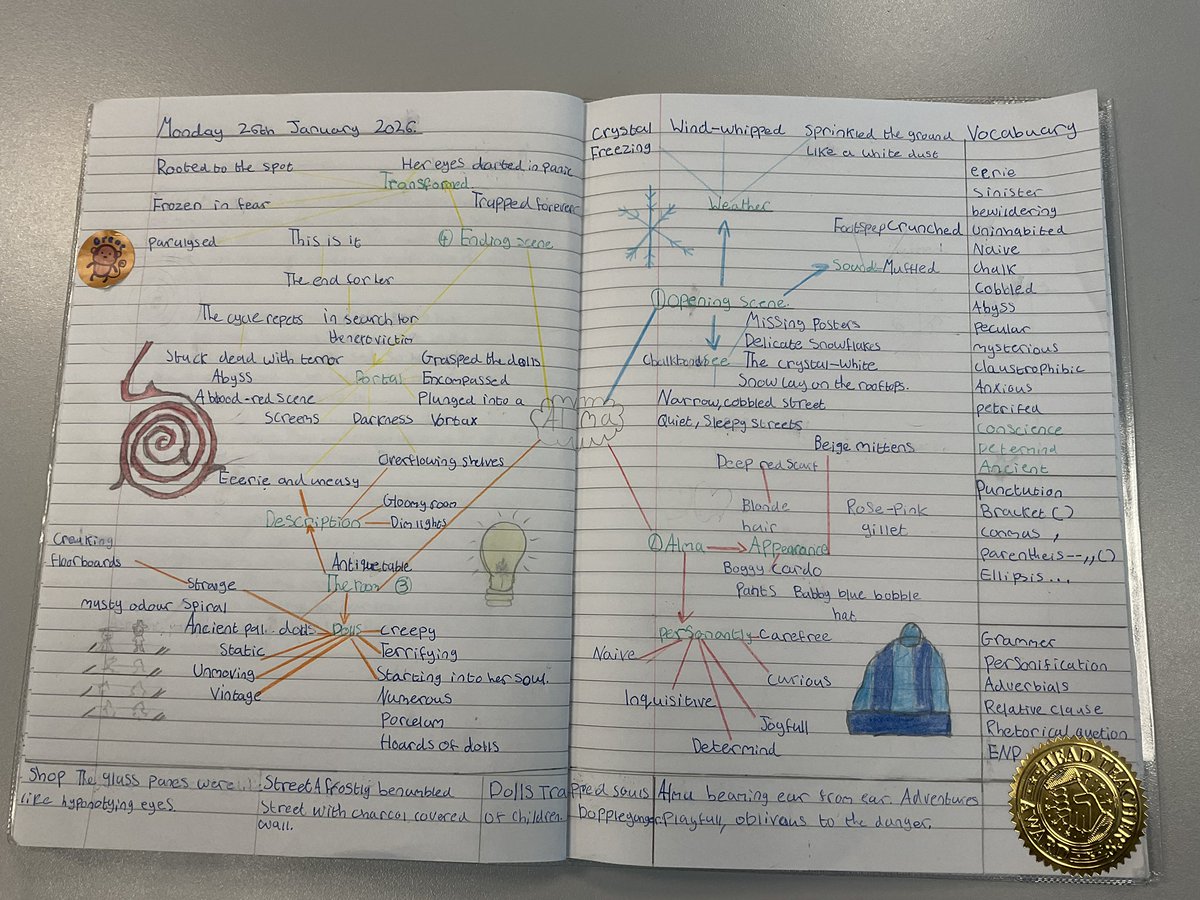 Monday 26th January 2026.
Rooted to the spot
Her eyes darted in panic
Transformed
Frozen in fear
Trapped forever
Great
paralysed
This is it
④ Ending scene
The end for her
The cycle repets in search for
the next victim
Stuck dead with terror
Grasped the dolls
Abyss
Portal
Encompassed
A blood-red scene
Plunged into a
Screams
Darkness
Vortax
Overflowing shelves
Eeerie and uneasy
Gloomy room
Description
Dim lights
Creaking
floorboards
Antique table
The room ③
Strange
musty odour
Spiral
Ancient
dolls
Dolls
creepy
Static
Terrifying
Unmoving
Starting into her soul.
Vintage
Numerous
Porcelam
Hoards of dolls
Shop The glass panes were
like hypnotying eyes
Street A frostig benumbed
Street with charcol covered
wall.
Dolls Trapped souls
of children.
Dopplegunger
Alma
Crystal
Freezing
Wind-whipped
Sprinkled the ground
Like a white dust
Weather
Footspep Crunched
Sound
Muffled
① Opening scene.
Missing Posters
Delicate Snowflakes
Chalkboard
see
The crystal-white
Snow lay on the rooftops.
Narrow, cobbled street
Quiet, Sleepy streets
Beige mittens
Deep red scarf
Blonde
hair
Rose-Pink
gillet
② Alma
Appearance
Boggy cardo
Pants
Babby blue bobble
hat
personantly
Carefree
Naive
Curious
Inquisitive
Joyfull
Determind
Alma beaming ear from ear. Adventures
Playfull, oblivous to the danger.
Vocabuary
eerie
Sinister
bewildering
Uninhabited
Naive
Chalk
Cobbled
Abyss
Pecular
mysterious
claustrophibic
Anxious
petrifed
Conscience
Determind
Ancient
Punctution
Bracket ()
commas ,
parentheis--,,()
Ellipsis...
Grammer
Personification
Adverbials
Relative clause
Rhetorical quetion
ENP
HEAD TEACHER'S AWARD